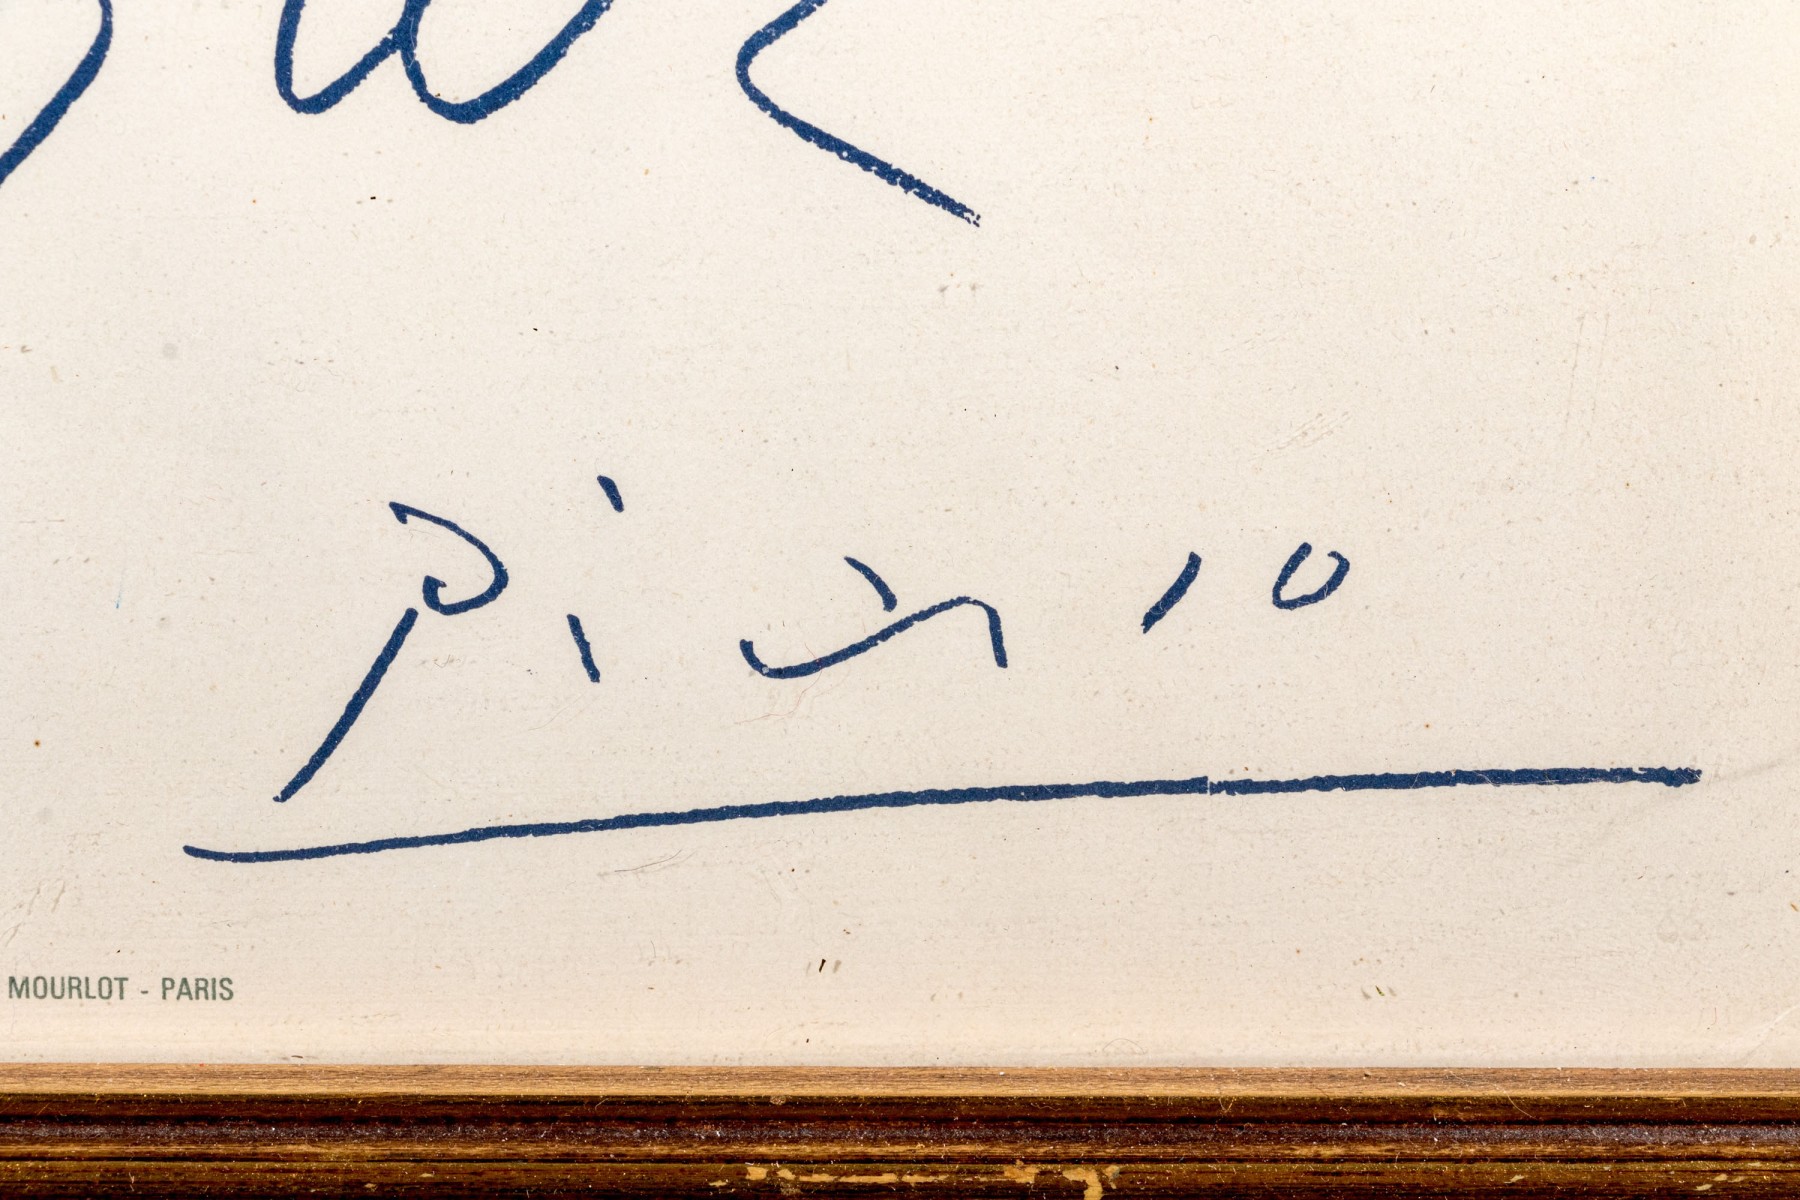 Picasso
MOURLOT - PARIS